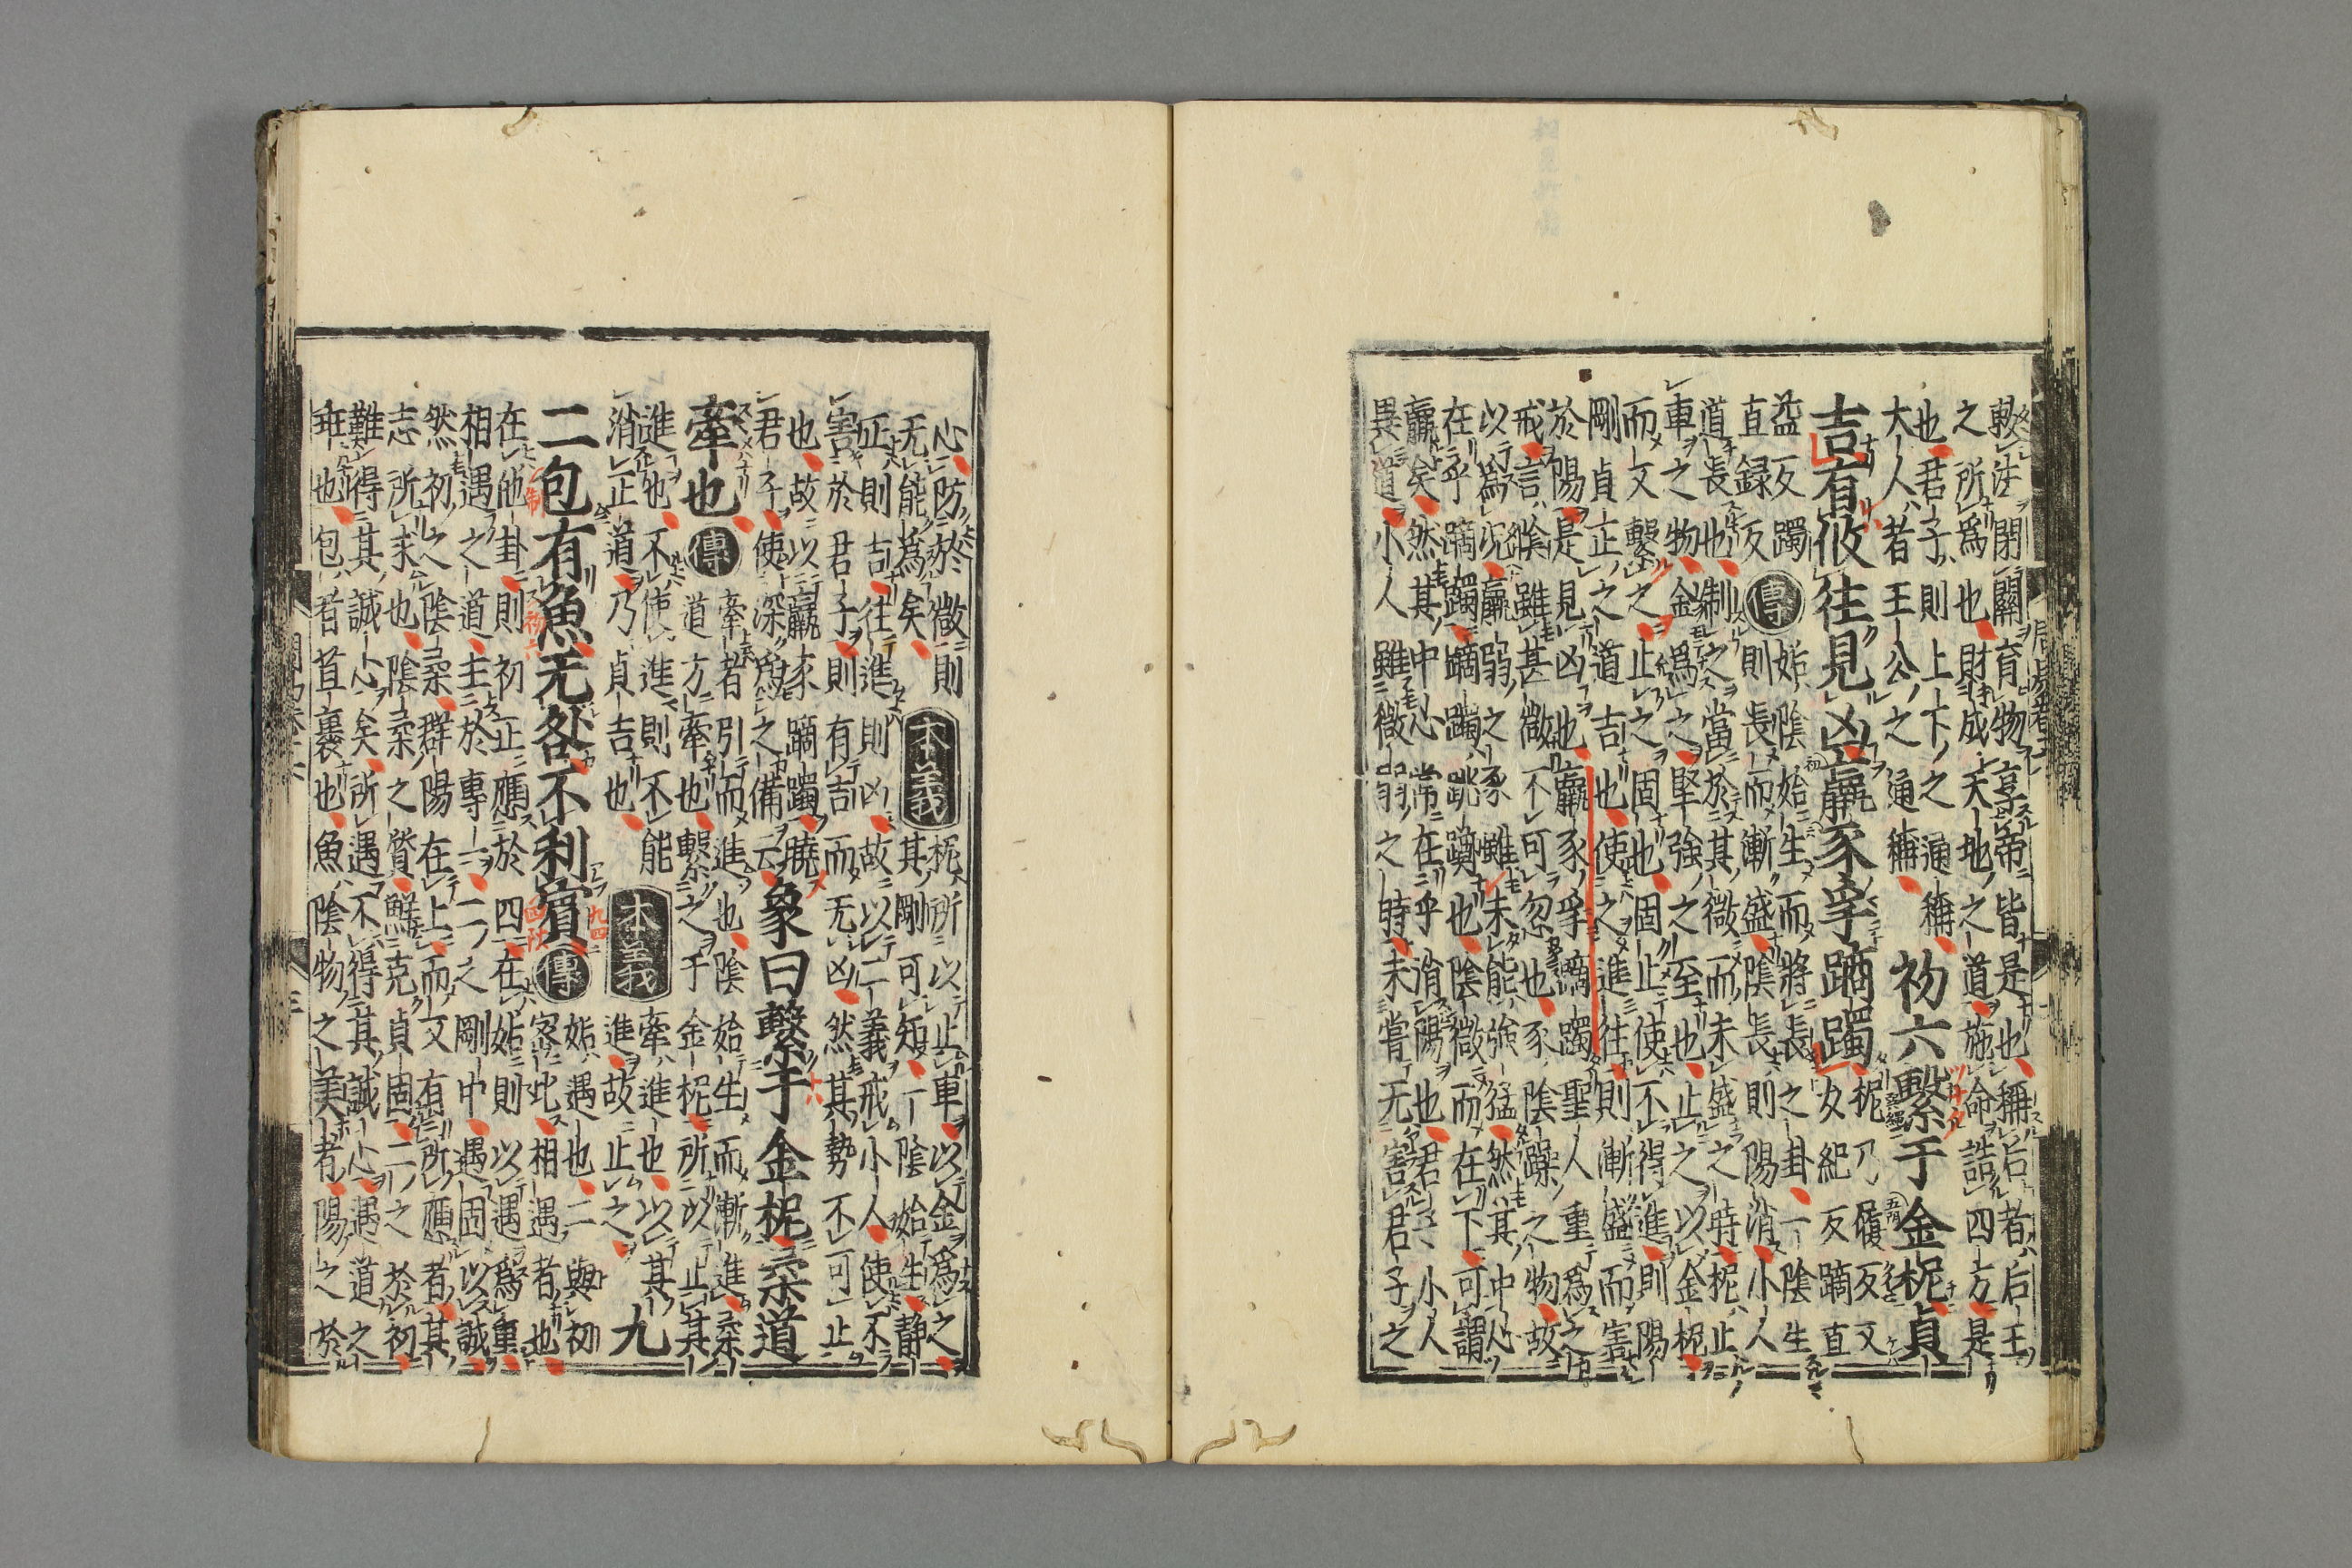 敕法閉關育物享帝皆是也稱后者后王
之所爲也財成天地之道施命誥四方是
也君子則上下之通稱
大人者王公之通稱
初六繫于金柅貞
吉有攸往見凶羸豕孚蹢躅
柅乃履反又
女紀反蹢直
益反躅
直録反
傳
姤陰始生而將長之卦一陰生
則長而漸盛陰長則陽消小人
道長也制之當於其微而未盛之時柅止
車之物金爲之堅強之至也止之以金柅
而又繫之止之固也固止使不得進則陽
剛貞正之道吉也使之進往則漸盛而害
於陽是見凶也羸豕孚蹢躅聖人重爲之
戒言陰雖甚微不可忽也豕陰躁之物故
以爲况羸弱之豕雖未能強猛然其中心
在乎蹢躅蹢躅跳躑也陰微而在下可謂
羸矣然其中心常在乎消陽也君子小人
異道小人雖微弱之時未嘗无害君子之
心防於微則
无能爲矣
本義
柅所以止車以金爲之
其剛可知一陰始生静
正則吉往進則凶故以二義戒小人使不
害於君子則有吉而无凶然其勢不可止
也故以羸豕蹢躅曉
君子使深爲之備云
象曰繫于金柅柔道
牽也
傳
牽者引而進也陰始生而漸進柔
道方牽也繫之于金柅所以止其
進也不使進則不能
消正道乃貞吉也
本義
牽進也以其
進故止之
九
二包有魚无咎不利賓
傳
姤遇也二與初
密比相遇者也
在他卦則初正應於四在姤則以遇爲重
相遇之道主於專一二之剛中遇固以誠
然初之陰柔群陽在上而又有所應者其
志所求也陰柔之質鮮克貞固二之於初
難得其誠心矣所遇不得其誠心遇道之
乖也包者苴裹也魚陰物之美者陽之於